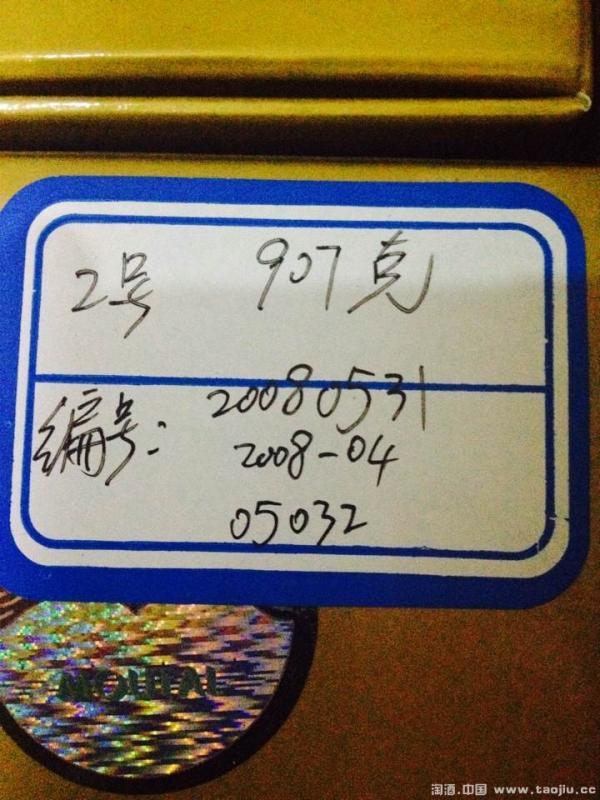 2号 907克
编号: 20080531
2008-04
05032
MOUTAI
淘酒.中国 www.taojiu.cc